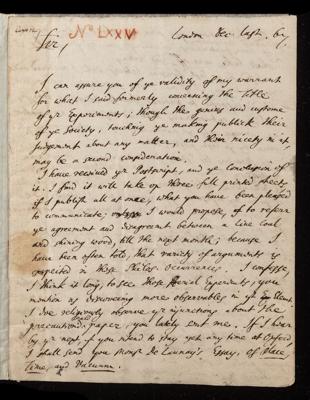 No LXXV
London Dec last. 67
Sir,
I can assure you of ye validity of my warrant
for what I said formerly concerning the Title
of yr Experiments; though the genius and custome
of ye Society, touching ye making publick their
Judgement about any matter, and their nicety in it
may be a second consideration.
I have received yr Postscript, and ye Conclusion of
it. I find it will take up three full printed sheets,
if I publish all at once, what you have been pleased
to communicate; I would propose, to referr
ye agreement and disagreement between a live coal
and shining wood, till the next month; because I
have been often told, that variety of arguments is
expected in those Philos. Occurrences. I confesse,
I think it long, to see those Aerial Experiments, you
mention as discovering more observables in yt Element.
I've religiously observe yr injunctions about the
precautional paper, you lately sent me. If I hear
by yr next, if you intend to stay yet any time at Oxford,
I shall send you Monsr De Launay's Essay, of Place,
Time, and Vacuum.